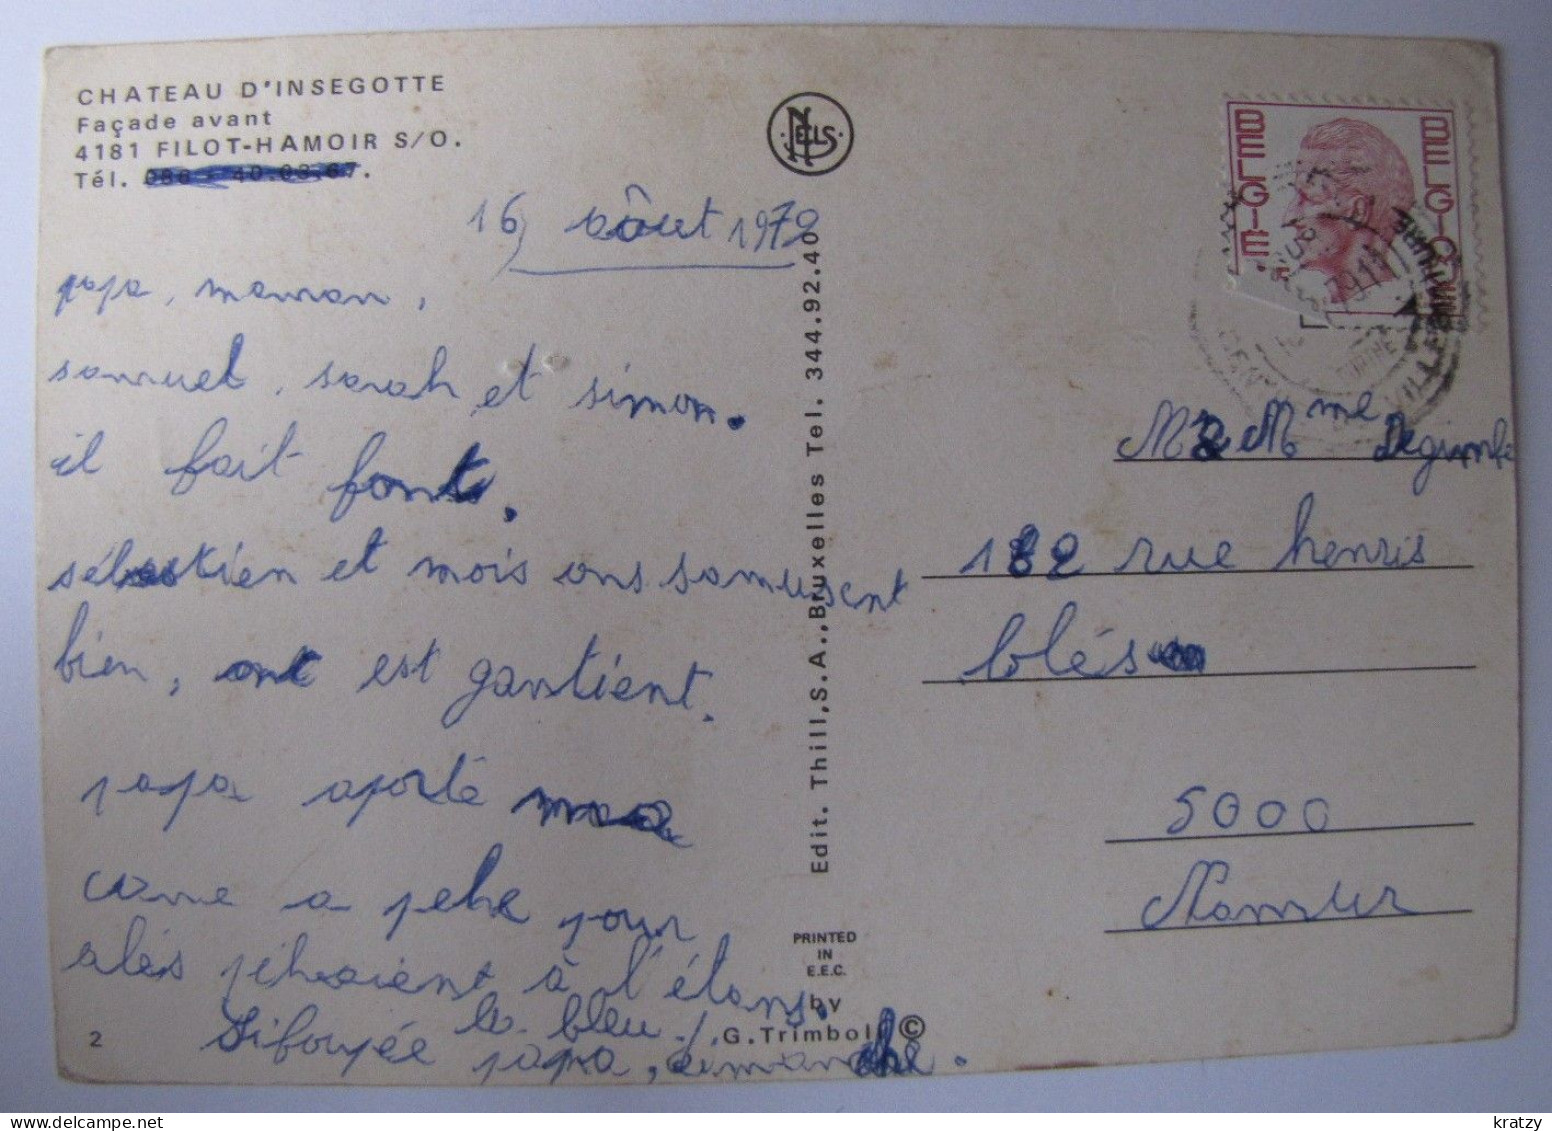 CHATEAU D'INSEGOTTE
Façade avant
4181 FILOT-HAMOIR S/O.
Tél.
NELS
16, aôut 1979
papa, maman,
samuel, sarah et simon.
il fait
sébastien et mois ons samusent
bien, est gantient.
papa aporté
cane a pehe pour
alés pihaient à l'étang.
le bleu
papa, dimanche.
2
Edit. Thill, S.A., Bruxelles Tel. 344.92.40
PRINTED
IN
E.E.C.
by
G. Trimboli ©
BELGIE
BELGIQUE
Mr & Mme Degumbe
182 rue henris
blés
5000
Namur
kratzy